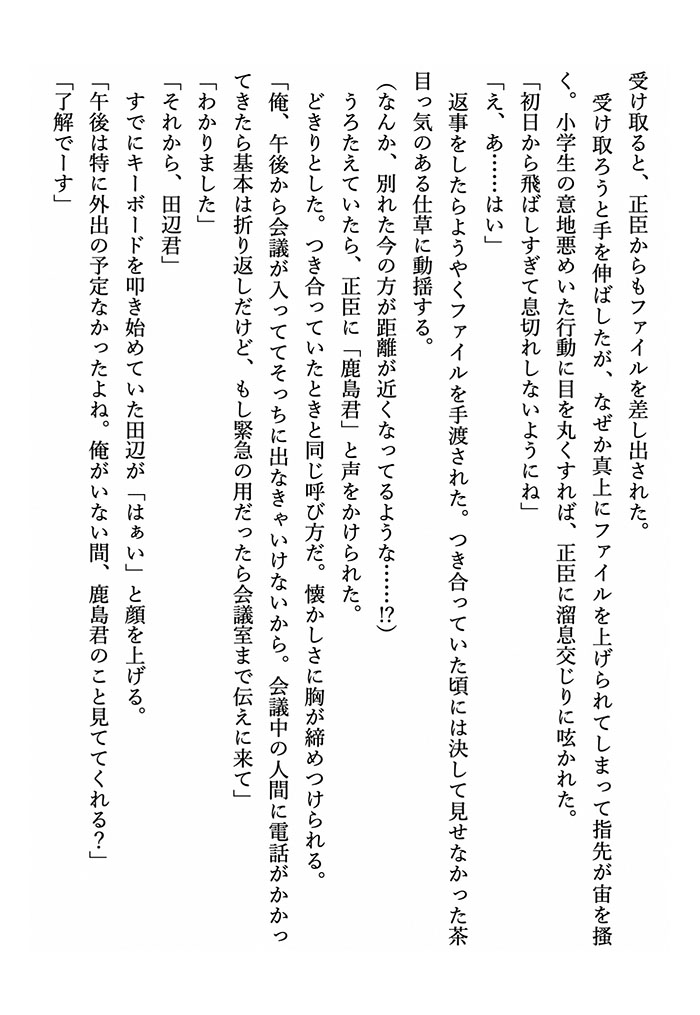 受け取ると、正臣からもファイルを差し出された。
　受け取ろうと手を伸ばしたが、なぜか真上にファイルを上げられてしまって指先が宙を掻
く。小学生の意地悪めいた行動に目を丸くすれば、正臣に溜息交じりに呟かれた。
「初日から飛ばしすぎて息切れしないようにね」
「え、あ……はい」
　返事をしたらようやくファイルを手渡された。つき合っていた頃には決して見せなかった茶
目っ気のある仕草に動揺する。
（なんか、別れた今の方が距離が近くなってるような……⁉）
　うろたえていたら、正臣に「鹿島君」と声をかけられた。
　どきりとした。つき合っていたときと同じ呼び方だ。懐かしさに胸が締めつけられる。
「俺、午後から会議が入っててそっちに出なきゃいけないから。会議中の人間に電話がかかっ
てきたら基本は折り返しだけど、もし緊急の用だったら会議室まで伝えに来て」
「わかりました」
「それから、田辺君」
　すでにキーボードを叩き始めていた田辺が「はぁい」と顔を上げる。
「午後は特に外出の予定なかったよね。俺がいない間、鹿島君のこと見ててくれる？」
「了解でーす」